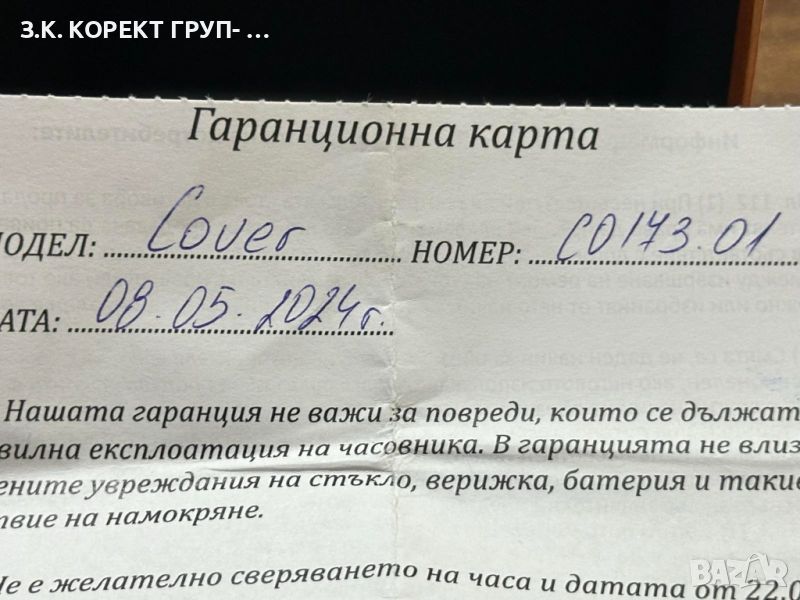 З.К. КОРЕКТ ГРУП- ...
Гаранционна карта
МОДЕЛ: Cover НОМЕР: CO173.01
АТА: 08.05.2024г.
Нашата гаранция не важи за повреди, които се дължат
вилна експлоатация на часовника. В гаранцията не влиз
ените увреждания на стъкло, верижка, батерия и такив
твие на намокряне.
Не е желателно сверяването на часа и датата от 22.0
BAZAR